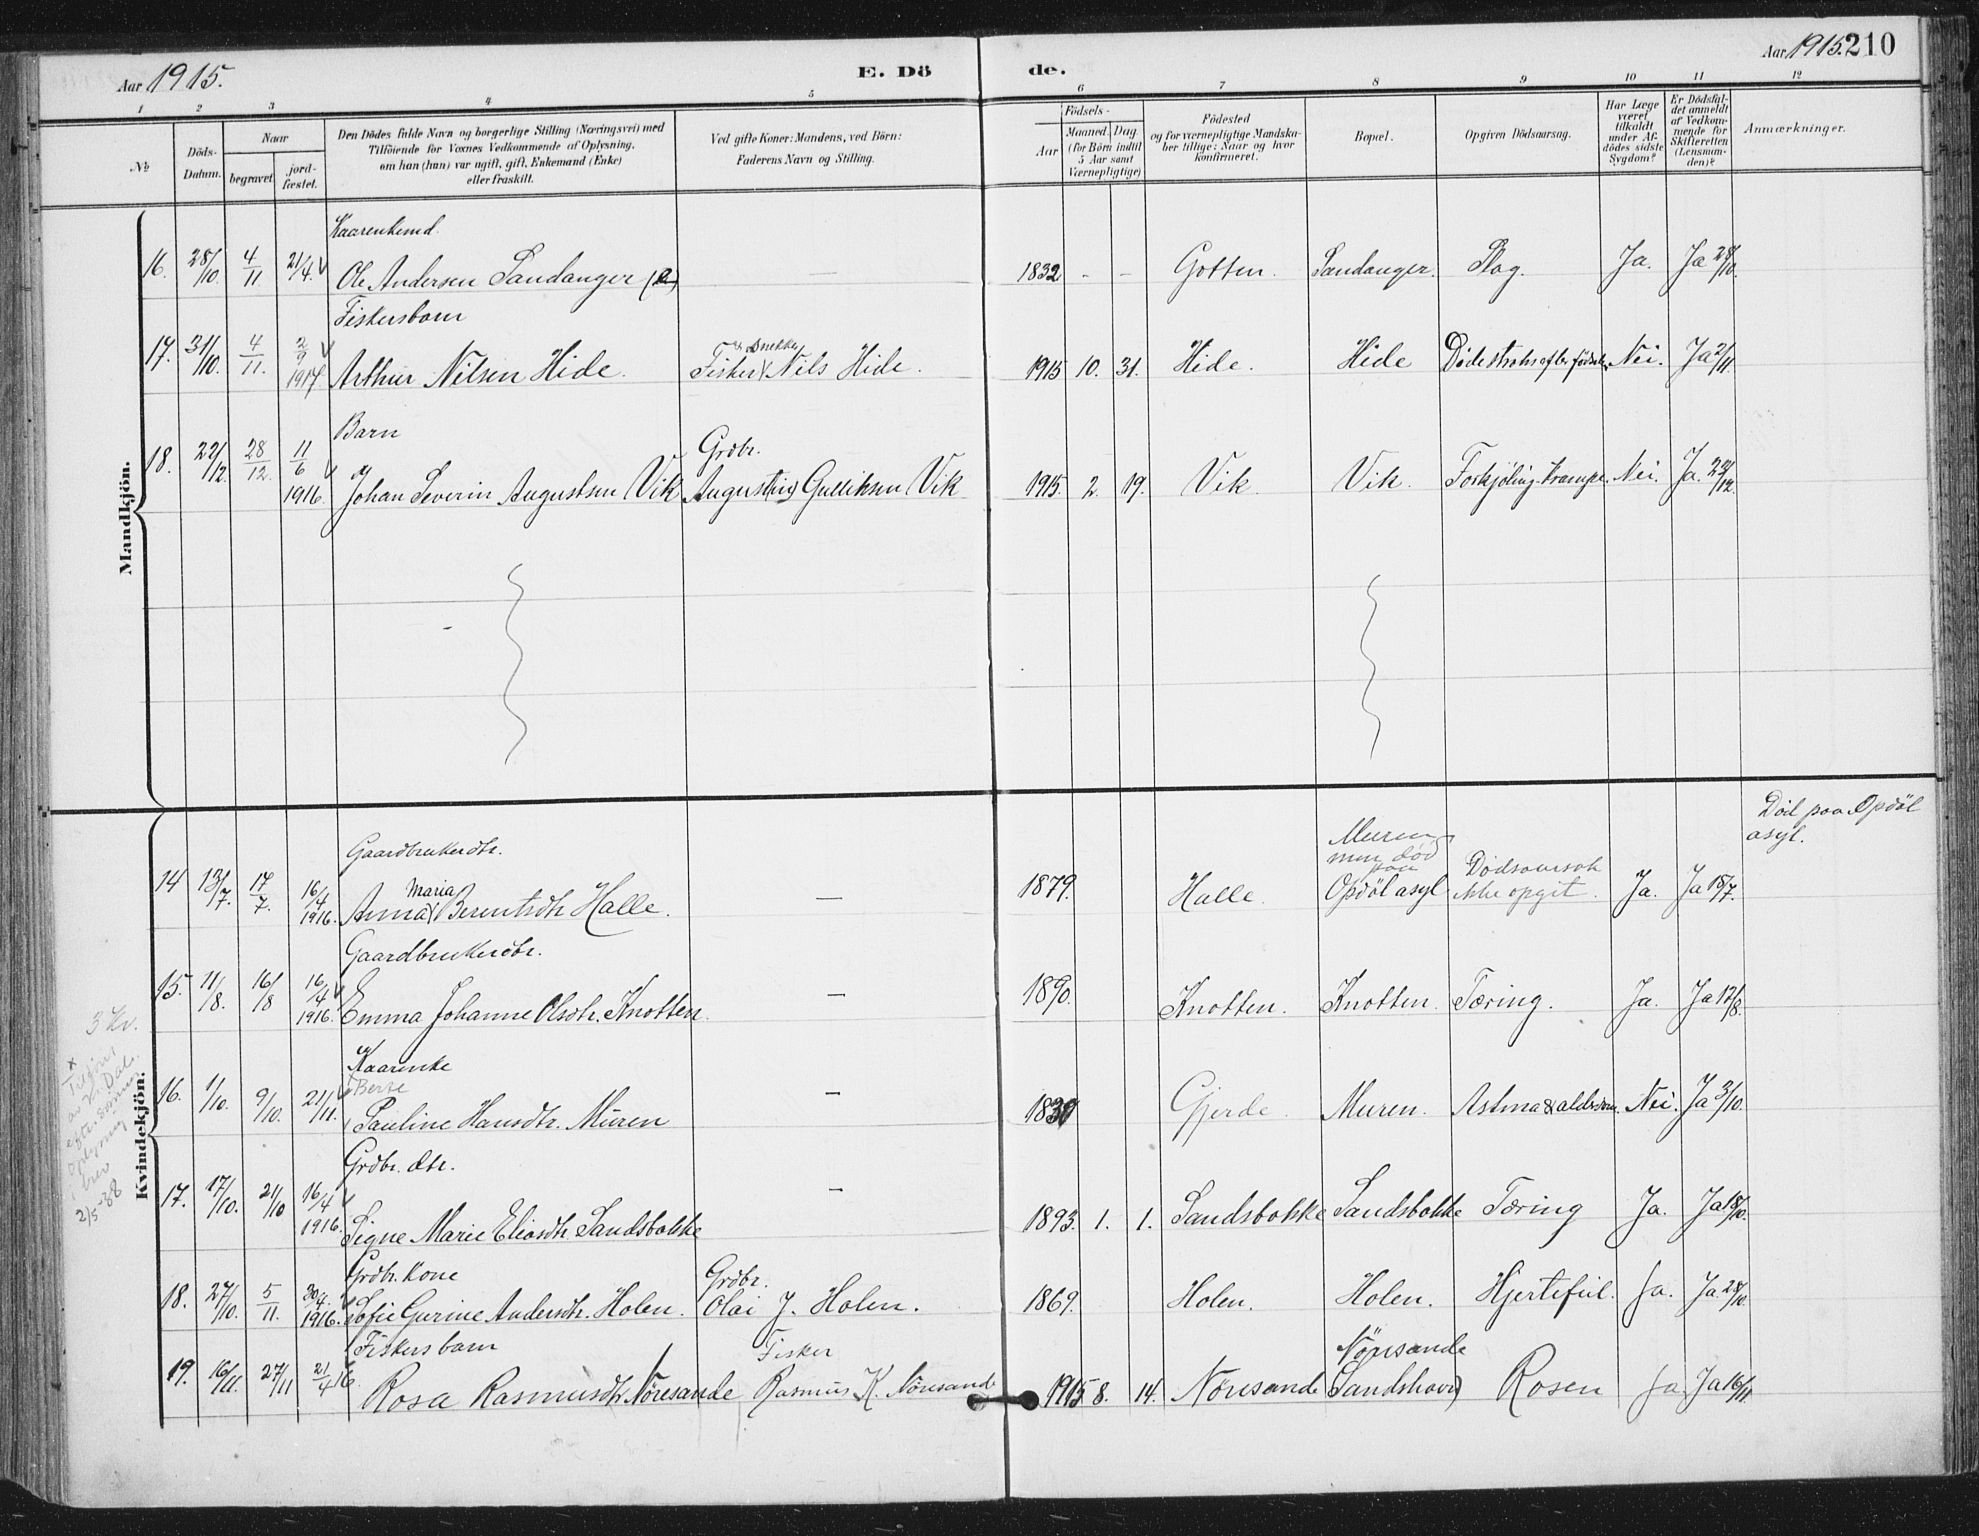 Aar 1915.
E. Dö
de.
Aar 1915. 210
1 2 3 4 5 6 7 8 9 10 11 12
No
Döds-
Datum.
Naar
begravet.
jord-
fæstet.
Den Dödes fulde Navn og borgerlige Stilling (Næringsvei) med
Tilföiende for Voxnes Vedkommende af Oplysning,
om han (hun) var ugift, gift, Enkemand (Enke)
eller fraskilt.
Ved gifte Koner: Mandens, ved Börn:
Faderens Navn og Stilling.
Födsels-
Aar
Maaned. Dag.
(for Börn indtil
5 Aar samt
Værnepligtige)
Födested
og for værnepligtige Mandska-
ber tillige: Naar og hvor
konfirmeret.
Bopæl.
Opgiven Dödsaarsag.
Har Læge
været
tilkaldt
under Af-
dödes sidste
Sygdom?
Er Dödsfal-
det anmeldt
af Vedkom-
mende for
Skifteretten
(Lensman-
den)?
Anmærkninger.
Mandkjön.
Kaarenkemd.
16. 28/10. 4/11 21/4. Ole Andersen Sandanger — 1832 - - Gotten. Sandanger. Slag. Ja. Ja 28/10.
Fiskersbarn
& Snekker
17. 31/10. 4/11. 2/9 1917 Arthur Nilsen Hide. Fisker Nils Hide. 1915 10. 31. Hide. Hide Döde straks efter födselen. Nei. Ja 2/11.
Barn Grdbr.
18. 22/12. 28/12. 11/6 1916. Johan Severin Augustsen Vik August Gulliksen Vik 1915. 2. 19. Vik. Vik. Forkjöling-krampe. Nei. Ja. 22/12.
Kvindekjön.
Död paa Opdöl
asyl.
Gaardbrukerdtr. Muren
men död
Maria paa Dödsaarsak
14 13/7. 17/7. 16/4 1916. Anna Berentsdtr Halle. — 1879. Halle. Opdöl asyl ikke opgit. Ja. Ja 18/7.
Gaardbrukerdtr.
15. 11/8. 16/8 16/4 1916. Emma Johanne Olsdtr. Knotten. — 1890. Knotten. Knotten. Tæring. Ja. Ja 12/8.
3 Kr.
Kaarenke
16. 1/10. 9/10. 21/11. Pauline Hansdtr. Muren — Gjerde. Muren. Astma & alderdom. Nei. Ja 3/10.
2/5-38
Grdbr. dtr.
17. 17/10. 21/10 16/4 1916. Signe Marie Eliasdtr. Sandsbakke — 1893. 1. 1. Sandsbakke Sandsbakke Tæring Ja. Ja 18/10.
Grdbr. Kone Grdbr.
18. 27/10. 5/11. 30/4. 1916. Sofie Gurine Andersdtr. Holen. Olai J. Holen. 1869. Holen. Holen. Hjertefeil. Ja. Ja. 28/10.
Fiskers barn Fisker Nöresande
19. 16/11. 27/11 21/4 16. Rosa Rasmusdtr. Nöresande Rasmus K. Nöresande 1915 8. 14. Nöresande (Sandshavn) Rosen Ja Ja 16/11.